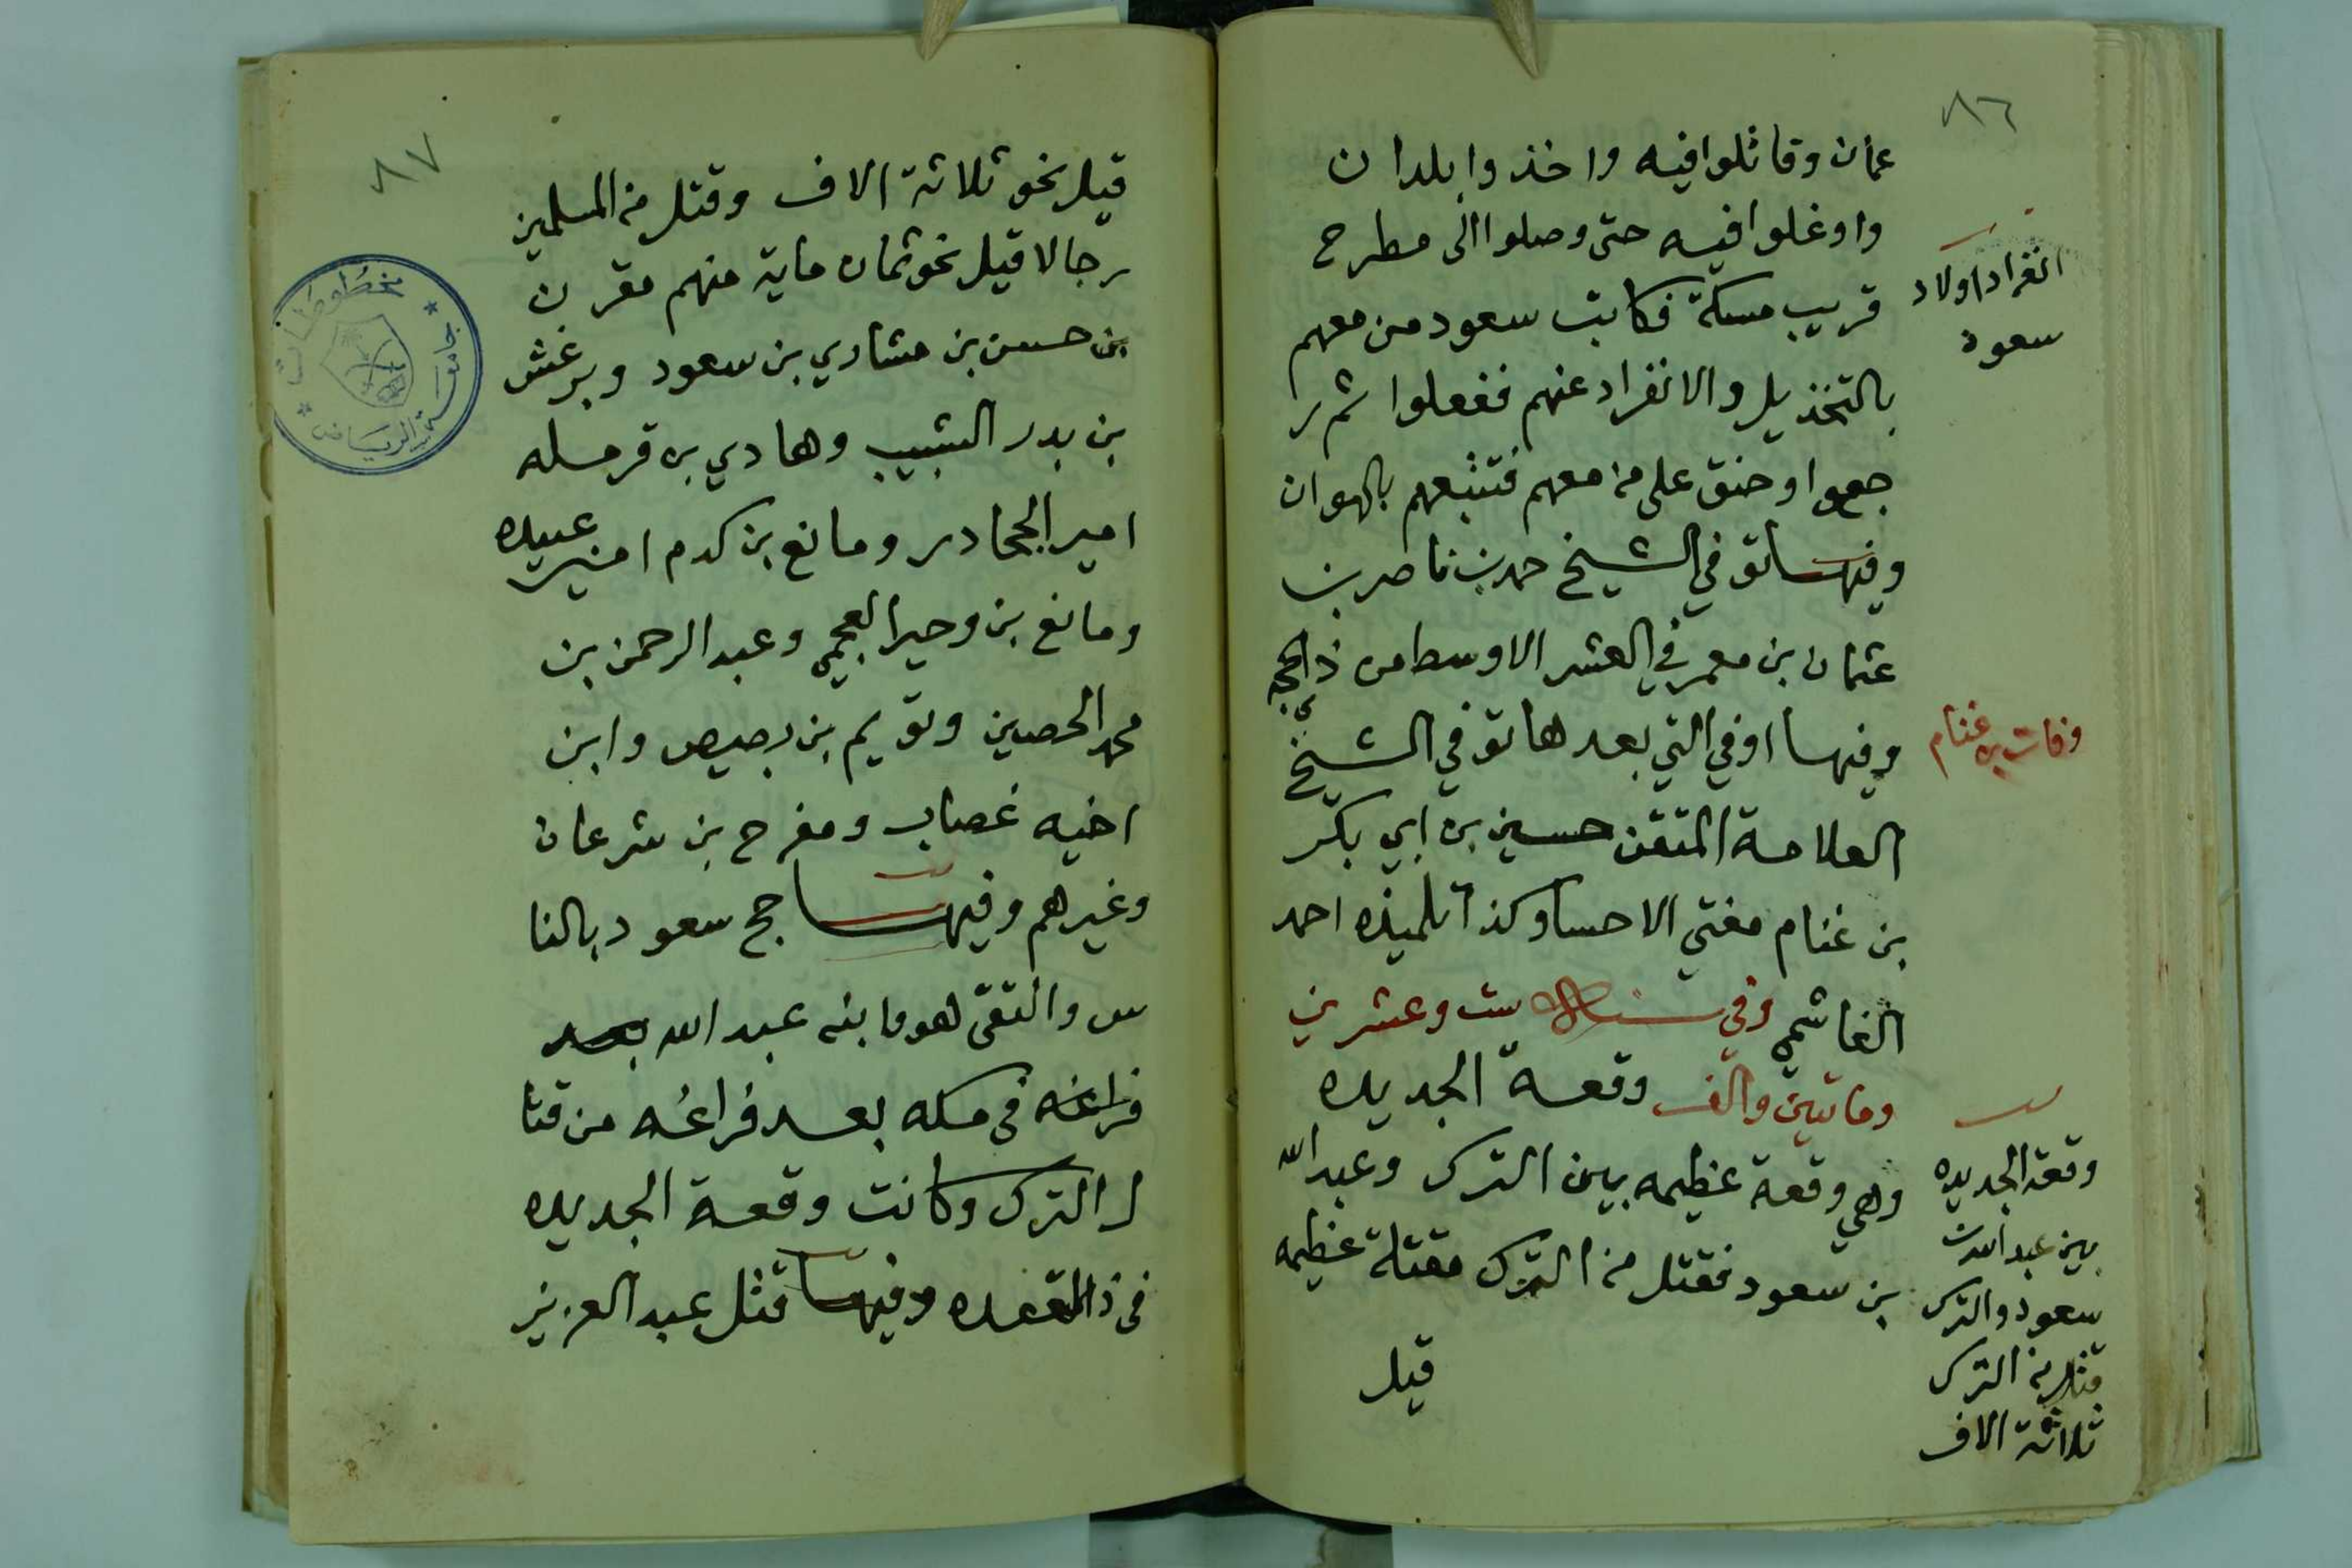 ٨٦
عمان وقاتلوا فيه واخذوا بلدان
واوغلوا فيه حتى وصلوا الى مطرح
قريب مسكة فكاتب سعود من معهم
بالتخذيل والانفراد عنهم ففعلوا ثم ر
جعوا وحنق على من معهم فتتبعهم بالهوان
وفيها توفي الشيخ حمد بن ناصر بن
عثمان بن معمر في العشر الاوسط من ذي الحجه
وفيها او في التي بعدها توفي الشيخ
العلامة المتقن حسين بن ابي بكر
بن غنام مفتي الاحسا وكذا تلميذه احمد
الغاشمي وفي سنة ست وعشرين
وماتيين والف وقعة الجديده
وهي وقعة عظيمه بين الترك وعبد الله
بن سعود فقتل من الترك مقتلة عظيمه
قيل
انفراد اولاد
سعود
وفات بن غنام
وقعة الجديده
بين عبد الله بن
سعود والترك
قتل من الترك
ثلاثة الاف
٨٧
قيل نحو ثلاثة الاف وقتل من المسلمين
رجالا قيل نحو ثمان ماية منهم مقرن
بن حسن بن مشاري بن سعود وبرغش
بن بدر الشبيب وهادي بن قرمله
امير الجحادر ومانع بن كدم امير عبيده
ومانع بن وحير العجمي وعبد الرحمن بن
محمد الحصين وتويم بن بصيص وابن
اخيه غصاب ومفرح بن شرعان
وغيرهم وفيها حج سعود بالنا
س والتقى هو وابنه عبد الله بعد
فراغه في مكه بعد فراغه من قتا
ل الترك وكانت وقعة الجديده
في ذا القعده وفيها قتل عبد العزيز
مخطوطات
جامعة الرياض